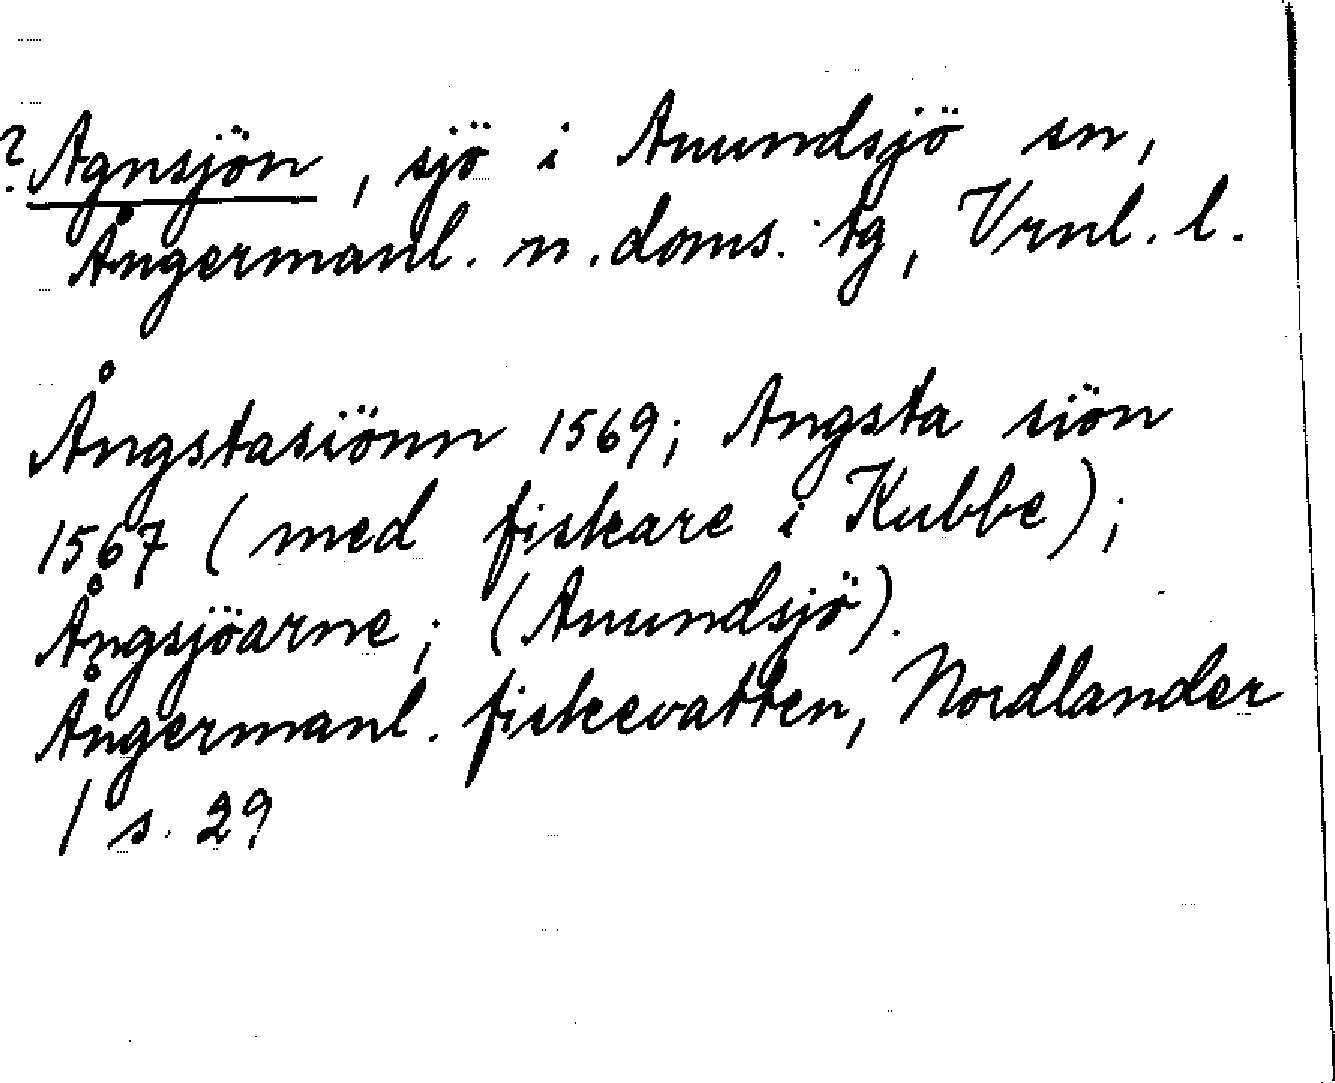 ? Agnsjön, sjö i Anundsjö sn,
Ångermanl. n. doms. tg, Vrnl. l.
Ångstasiönn 1569; Angsta siön
1567 (med fiskare i Kubbe);
Ångsjöarne; (Anundsjö).
Ångermanl. fiskevatten, Nordlander
/ s. 29